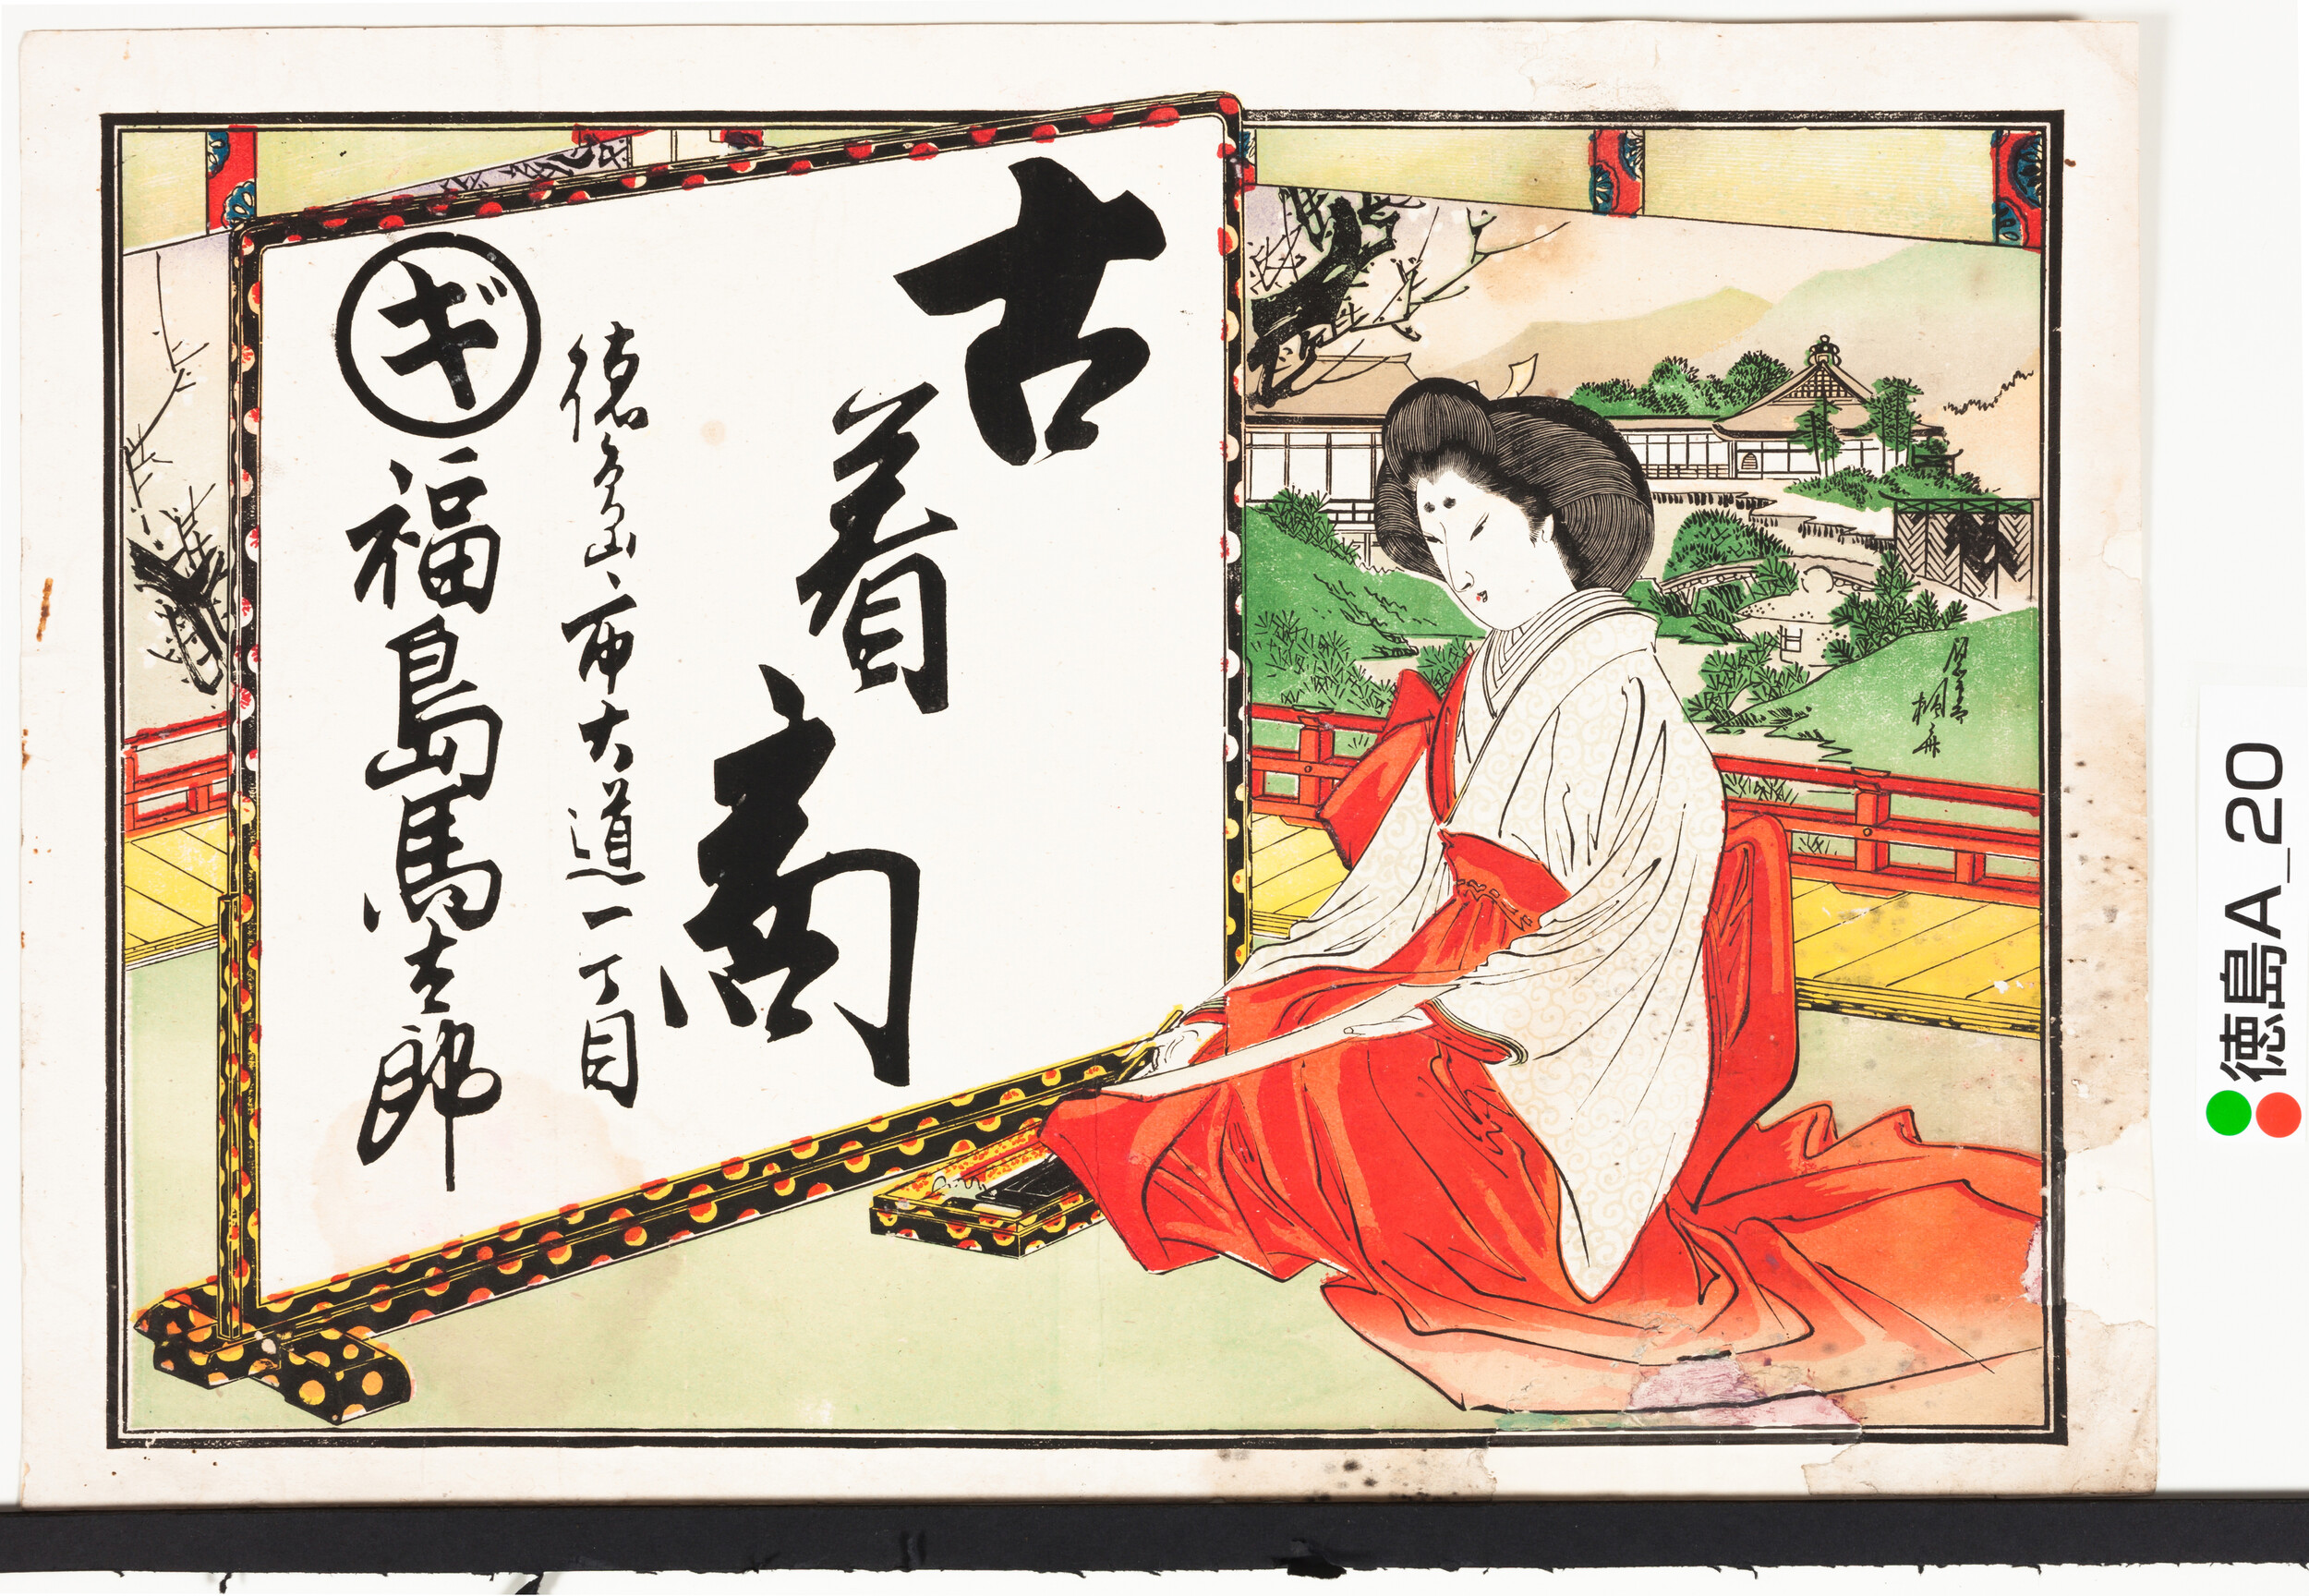 古着商
徳島市大道一丁目
ギ
福島馬郎
徳島A_20